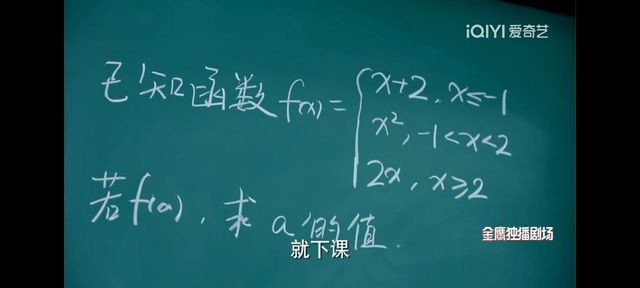 iQIYI 爱奇艺
已知函数 f(x)=
x+2, x≤-1
x², -1<x<2
2x, x≥2
若f(a), 求 a 的值.
金鹰独播剧场
就下课